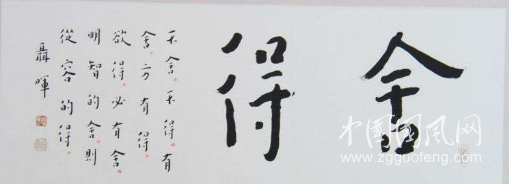 舍得
不舍。不得。有
舍方有得。
欲得。必有舍。
明智的舍。則
從容的得。
聶暉
中国国风网
www.zgguofeng.com